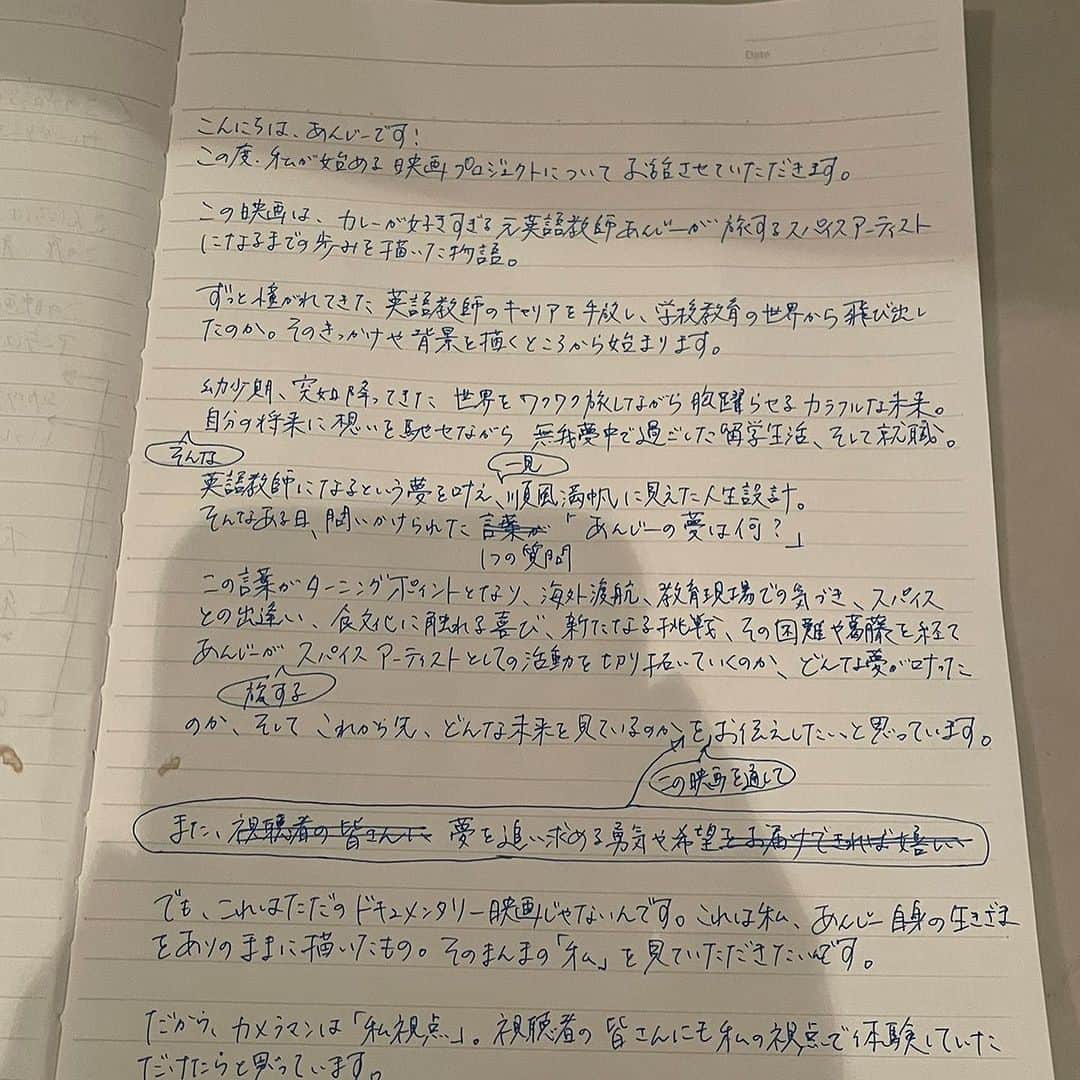 Date
こんにちは、あんじーです!
この度、私が始める映画プロジェクトについてお話させていただきます。
この映画は、カレーが好きすぎる元英語教師あんじーが旅するスパイスアーティスト
になるまでの歩みを描いた物語。
ずっと憧がれてきた英語教師のキャリアを手放し、学校教育の世界から飛び出し
たのか。そのきっかけや背景を描くところから始まります。
幼少期、突如降ってきた世界をワクワク旅しながら胸躍らせるカラフルな未来。
自分の将来に想いを馳せながら無我夢中で過ごした留学生活、そして就職。
そんな
一見
英語教師になるという夢を叶え、順風満帆に見えた人生設計。
そんなある日、問いかけられた言葉が「あんじーの夢は何?」
1つの質問
この言葉がターニングポイントとなり、海外渡航、教育現場での気づき、スパイス
との出逢い、食文化に触れる喜び、新たなる挑戦、その困難や葛藤を経て
あんじーがスパイスアーティストとしての活動を切り拓いていくのか、どんな夢が叶った
旅する
のか、そしてこれから先、どんな未来を見ているのかをお伝えしたいと思っています。
この映画を通して
また、視聴者の皆さんに夢を追い求める勇気や希望をお届けできれば嬉しい
でも、これはただのドキュメンタリー映画じゃないんです。これは私、あんじー自身の生きざま
をありのままに描いたもの。そのまんまの「私」を見ていただきたいんです。
だから、カメラマンは「私視点」。視聴者の皆さんにも私の視点で体験していた
だけたらと思っています。